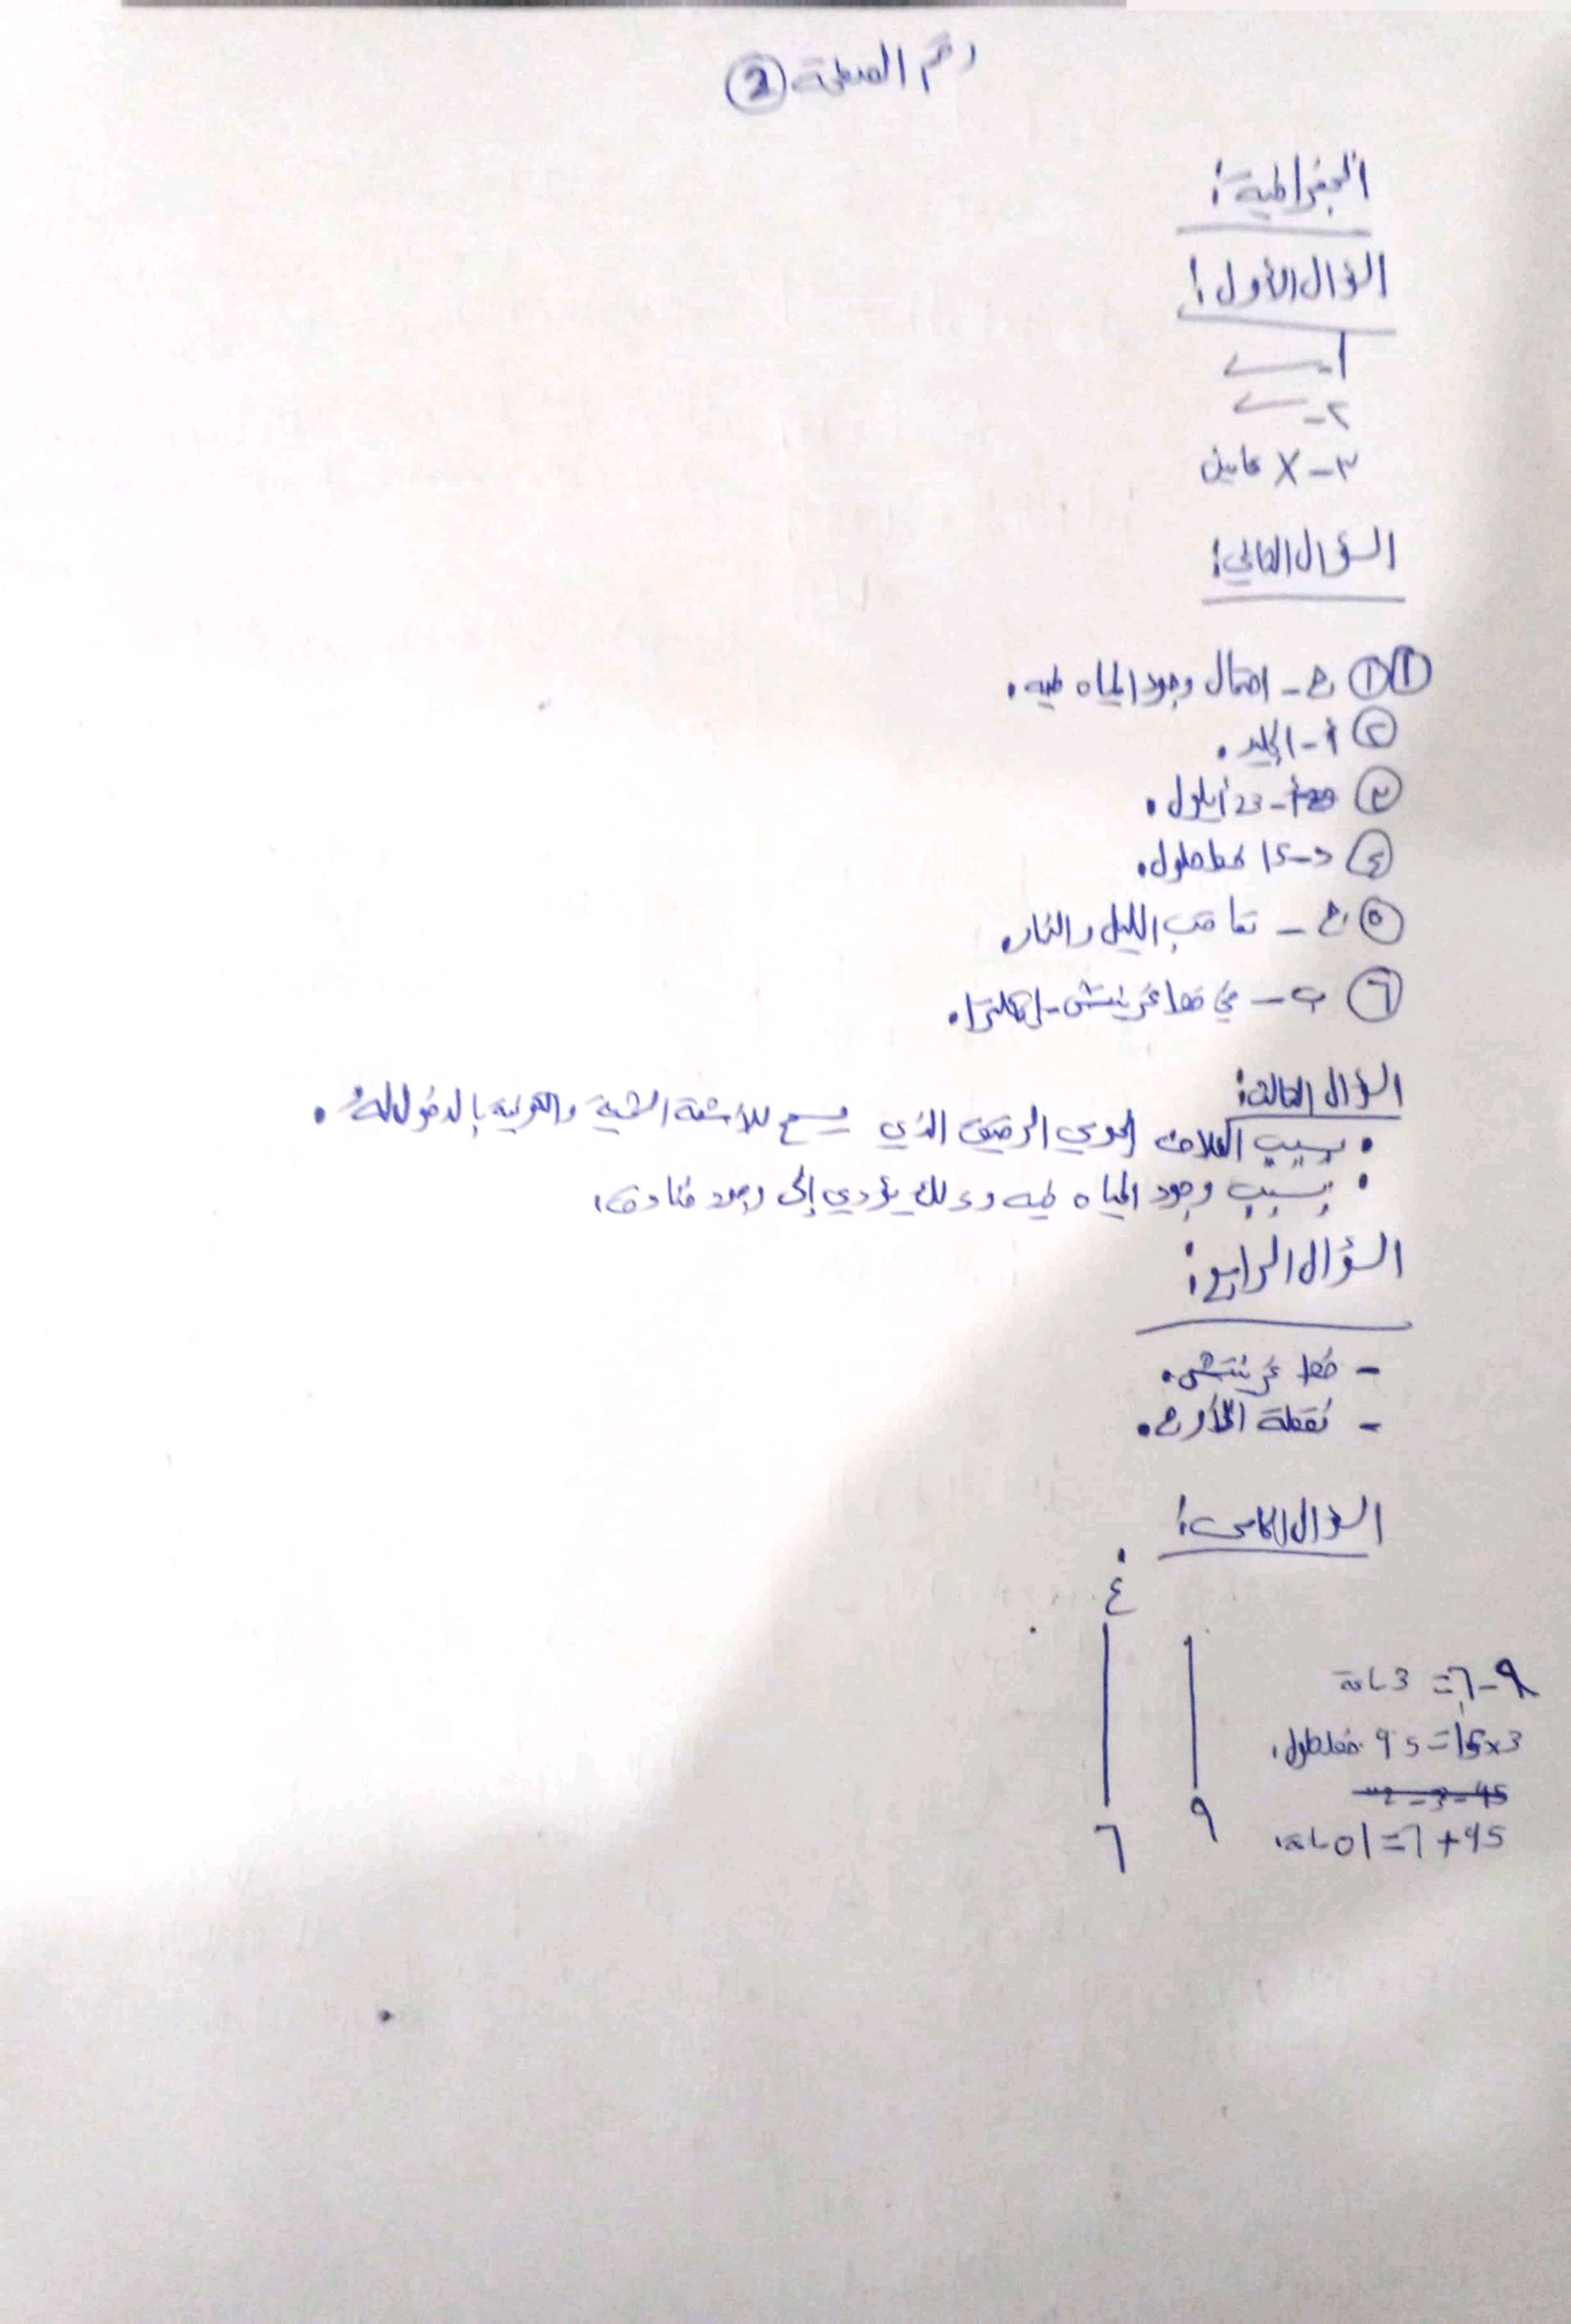 رقم الصفحة (2)
الجغرافية:
السؤال الأول:
١- ✓
٢- ✓
٣- X مايل
السؤال الثاني:
① ① ج - احتمال وجود المياه فيه.
② أ - الجليد.
③ أ - 23 أيلول.
④ د - ١٥ خط طول.
⑤ ج - تعاقب الليل والنهار.
⑥ ب - في خط غرينتش - إنكلترا.
السؤال الثالث:
• بسبب الغلاف الجوي الرقيق الذي يسمح للأشعة الشمسية والكونية بالدخول له.
• بسبب وجود المياه فيه وذلك يؤدي إلى وجود فنادق.
السؤال الرابع:
- خط غرينتش.
- نقطة الأوج.
السؤال الخامس:
غ
٩-٦= 3 ساعة
١5×3=45 خط طول.
45+٦=٥١ ساعة.
٦ ٩